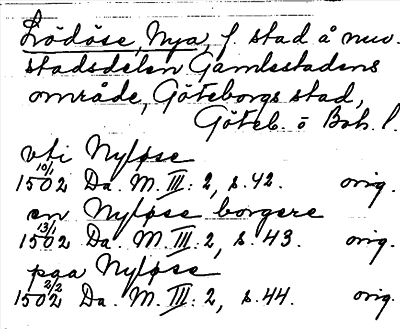 Lödöse, Nya, f. stad å nuv.
stadsdelen Gamlestadens
område, Göteborgs stad,
Göteb. o Boh. l.
vti Nyløse
10/1
1502 Da. M. III: 2, s. 42. orig.
en Nyløse borgere
13/1
1502 Da. M. III: 2, s. 43. orig.
paa Nyløse
2/2
1502 Da. M. III: 2, s. 44. orig.